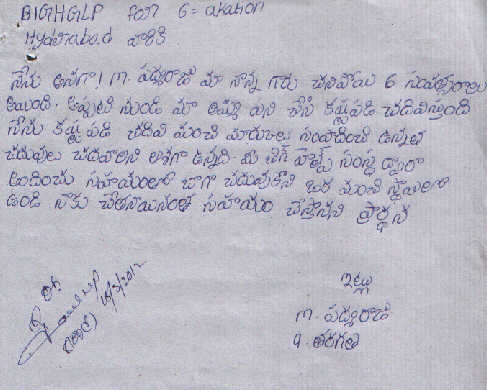 BIGHGLP for G=avation
Hyderabad వారికి
నేను అనగా! M. పద్మరాజు మా నాన్న గారు చనిపోయి 6 సంవత్సరాలు
అయింది. అప్పటి నుండి మా అమ్మ పని చేసి కష్టపడి చదివిస్తుంది
నేను కష్ట పడి చదివి మంచి మార్కులు సంపాదించి ఉన్నత
చదువులు చదవాలని ఆశగా ఉన్నది. మీ బిగ్ హెల్ప్ సంస్థ ద్వారా
అందించు సహాయంతో బాగా చదువుకొని ఒక మంచి స్థాయిలో
ఉండి నాకు చేతనయినంత సహాయం చేస్తానని ప్రార్థన
ఇట్లు
M. పద్మరాజు
9. తరగతి